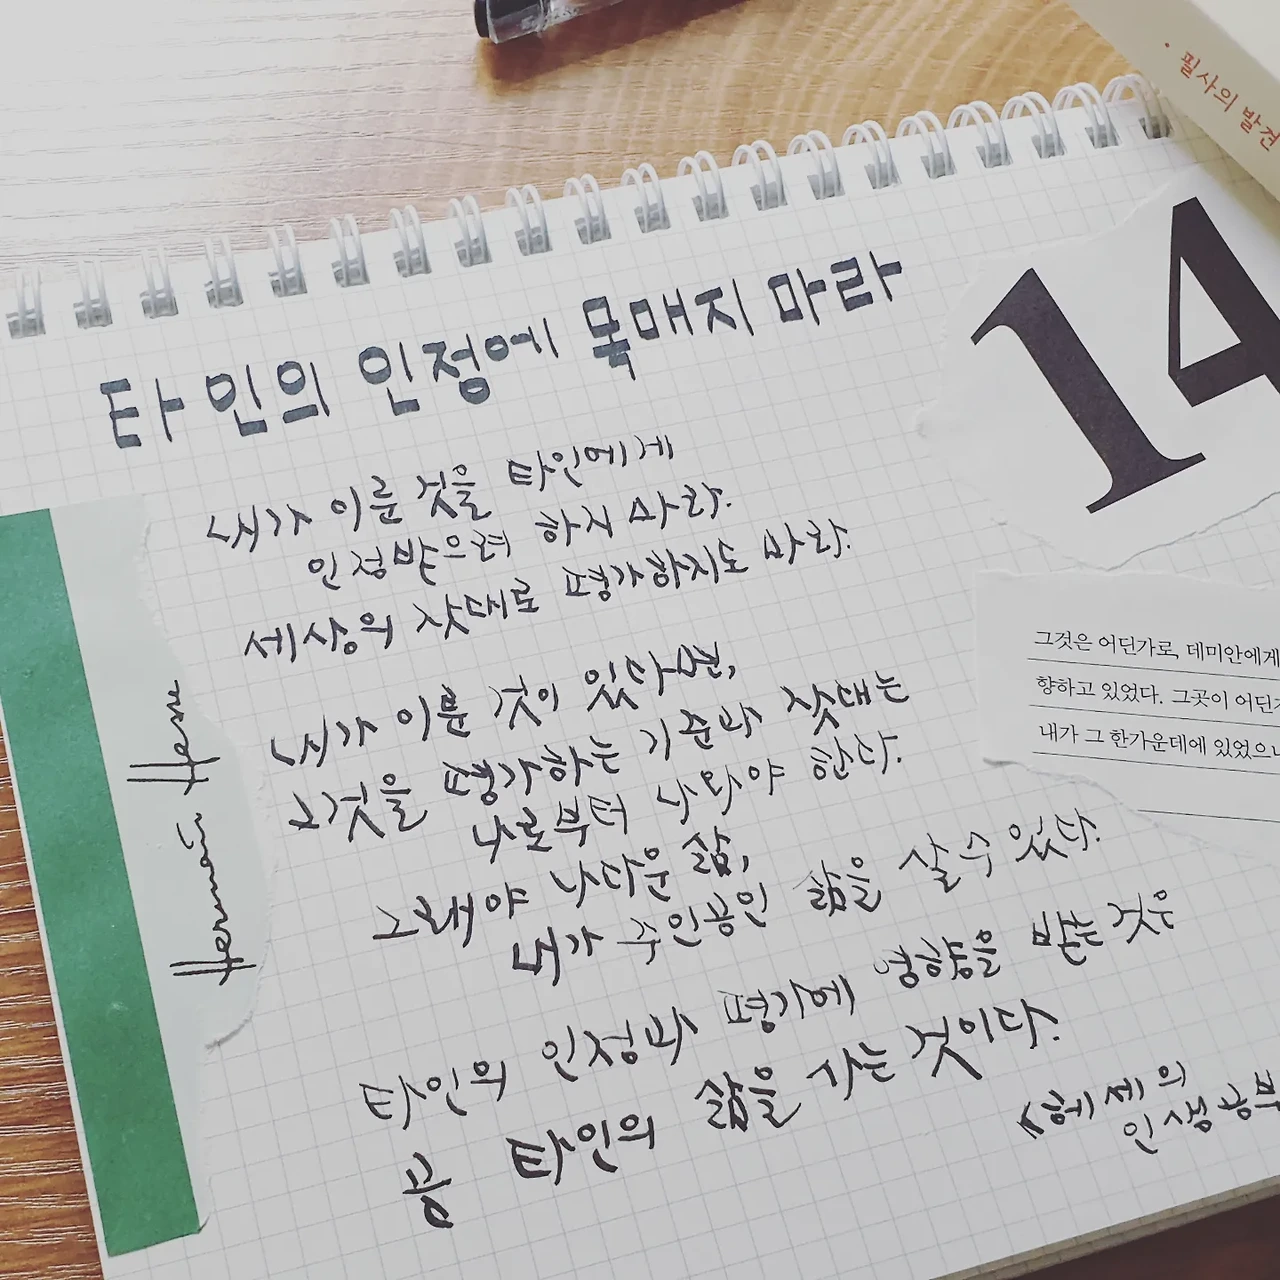 · 필사의 발견
14
타인의 인정에 목매지 마라
내가 이룬 것을 타인에게
인정받으려 하지 마라.
세상의 잣대로 평가하지도 마라.
내가 이룬 것이 있다면,
그것을 평가하는 기준과 잣대는
나로부터 나와야 한다.
그래야 나다운 삶,
내가 주인공인 삶을 살 수 있다.
타인의 인정과 평가에 영향을 받는 것은
곧 타인의 삶을 사는 것이다.
<헤세의
인생공부
Hermann Hesse
그것은 어딘가로, 데미안에게
향하고 있었다. 그곳이 어딘
내가 그 한가운데에 있었으